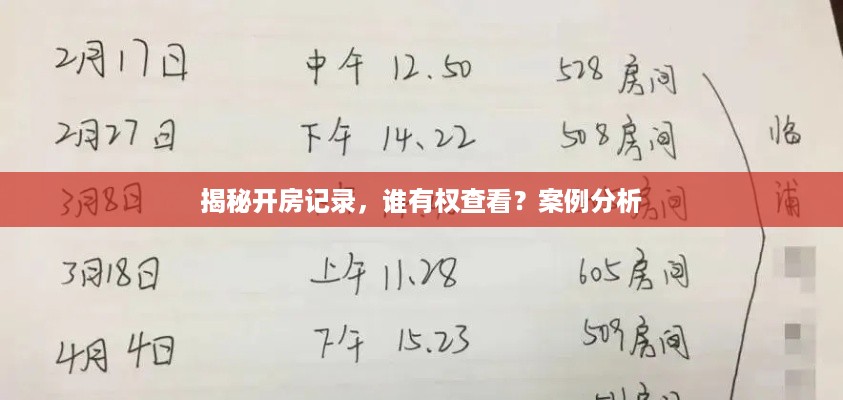 2月17日 中午 12.50 528房间
2月27日 下午 14.22 508房间
临
浦
揭秘开房记录，谁有权查看？案例分析
3月8日 房间
3月18日 上午 11.28 605房间
4月4日 下午 15.23 509房间
房间